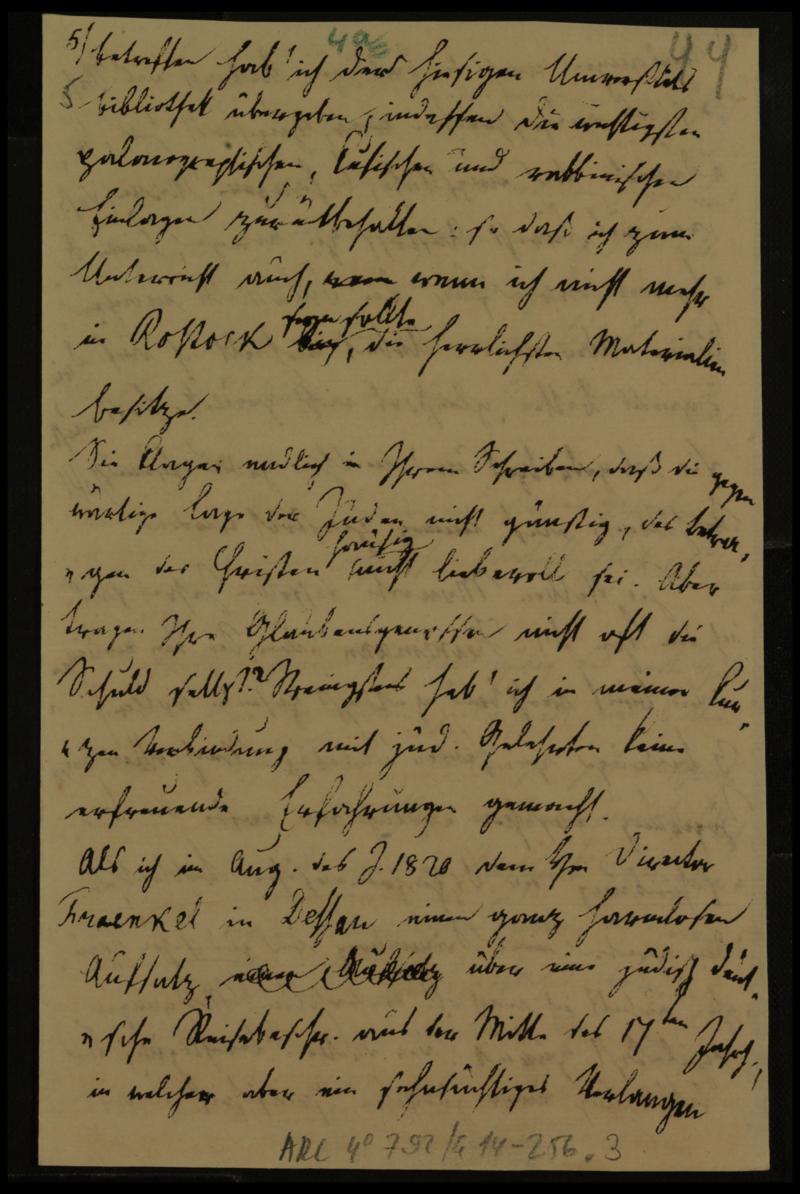 5/ betreffen hab' ich der hiesigen Universitäts
bibliothek übergeben; indessen die wichtigsten
palaeographischen, kufischen und rabbinischen
Einlagen zurückbehalten: so daß ich zum
Unterricht auch, wenn ich nicht mehr
in Rostock seyn sollte, die herrlichsten Materialien
besitze.
Sie klagen endlich in Ihrem Schreiben, daß die gegen
wärtige Lage der Juden nicht günstig, das Betra-
gen der Christen häufig nicht liebevoll sei. Aber
tragen Ihre Glaubensgenossen nicht oft die
Schuld selbst? Wenigstens hab' ich in meiner kur-
zen Verbindung mit jüd. Gelehrten keine
erfreuende Erfahrungen gemacht.
Als ich im Aug. des J. 1820 dem Hrn Director
Fraenkel in Dessau einen ganz harmlosen
Aufsatz, über eine jüdisch deut-
sche Reisebeschr. aus der Mitte des 17ten Jahrh.,
in welcher aber ein sehnsüchtiges Verlangen
49a
44
5
ARC 4° 792/G 14-256.3